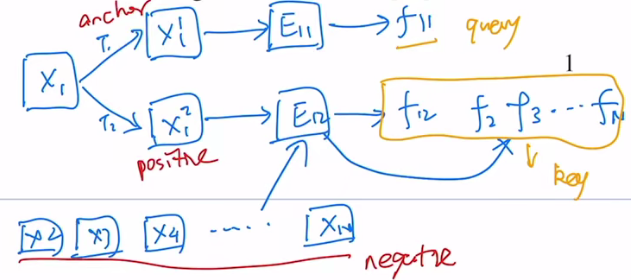 anchor
T₁ X₁¹ E₁₁ f₁₁ query
1
X₁
T₂ X₁² E₁₂ f₁₂ f₂ f₃ ... f_N
positive
key
X2 X3 X4 ..... X_N
negative